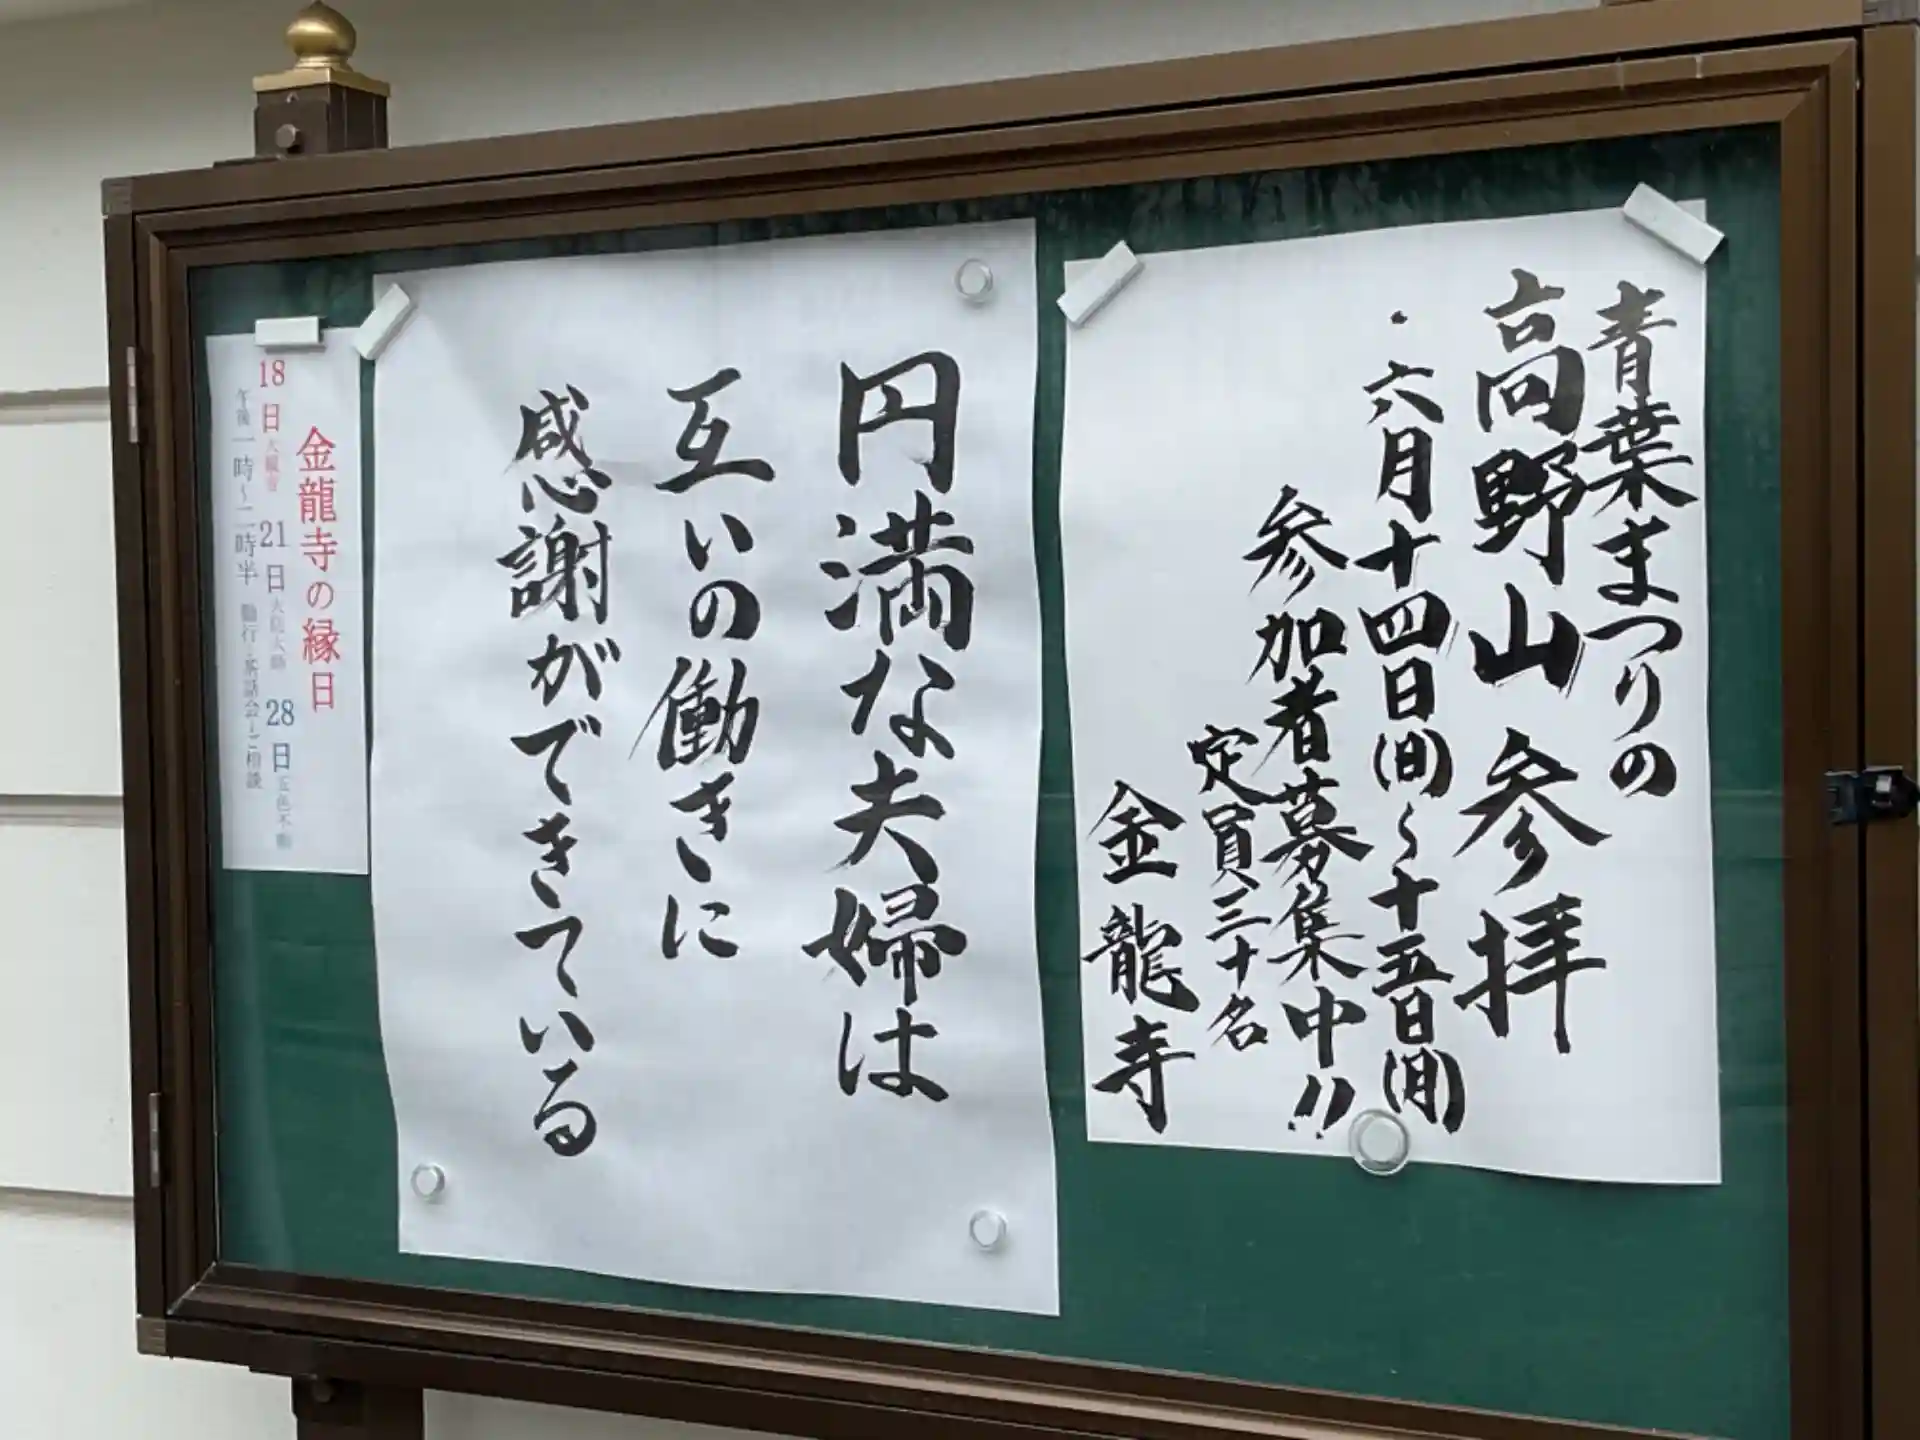 青葉まつりの
高野山参拝
・六月十四日(日)〜十五日(月)
参加者募集中!!
定員三十名
金龍寺
円満な夫婦は
互いの働きに
感謝ができている
金龍寺の縁日
18日 21日 28日
午後一時〜二時半 勤行・茶話会・ご相談